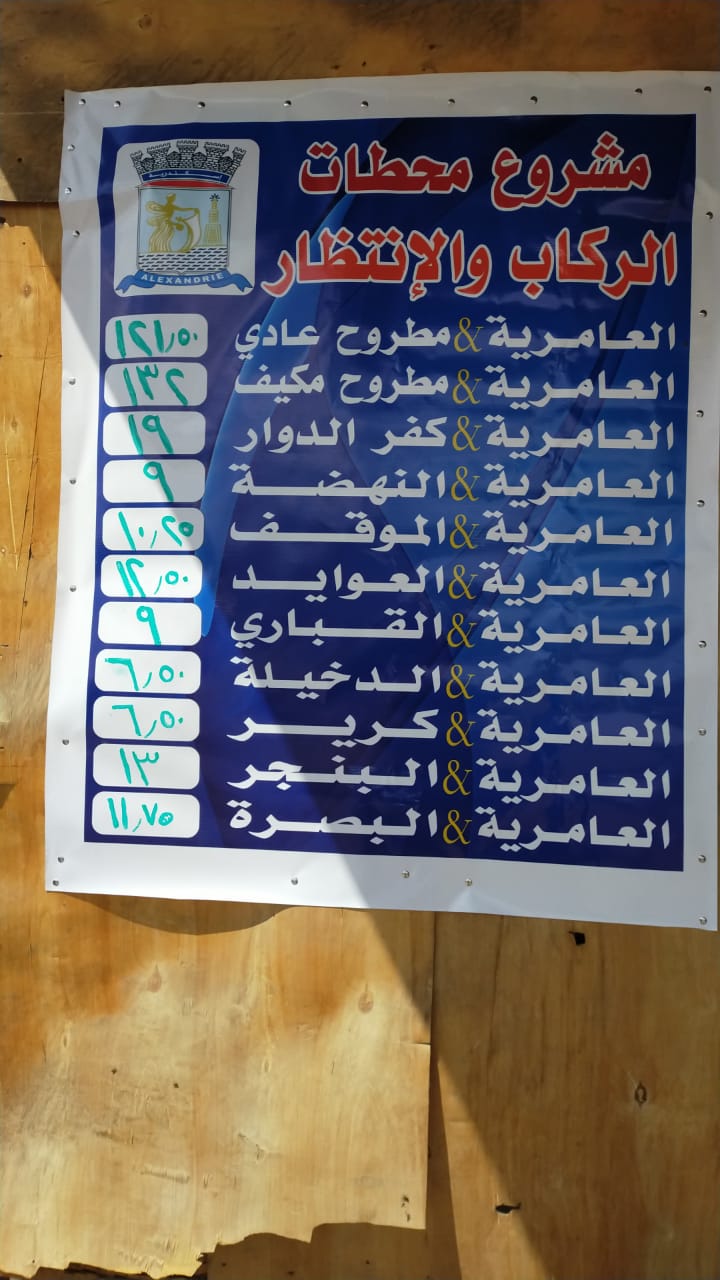 مشروع محطات
الركاب والإنتظار
إسكندرية
ALEXANDRIE
العامرية & مطروح عادي ١٢١٫٥٠
العامرية & مطروح مكيف ١٣٢
العامرية & كفر الدوار ١٩
العامرية & النهضة ٩
العامرية & الموقف ١٠٫٢٥
العامرية & العوايد ١٢٫٥٠
العامرية & القباري ٩
العامرية & الدخيلة ٦٫٥٠
العامرية & كرير ٦٫٥٠
العامرية & البنجر ١٣
العامرية & البصرة ١١٫٧٥